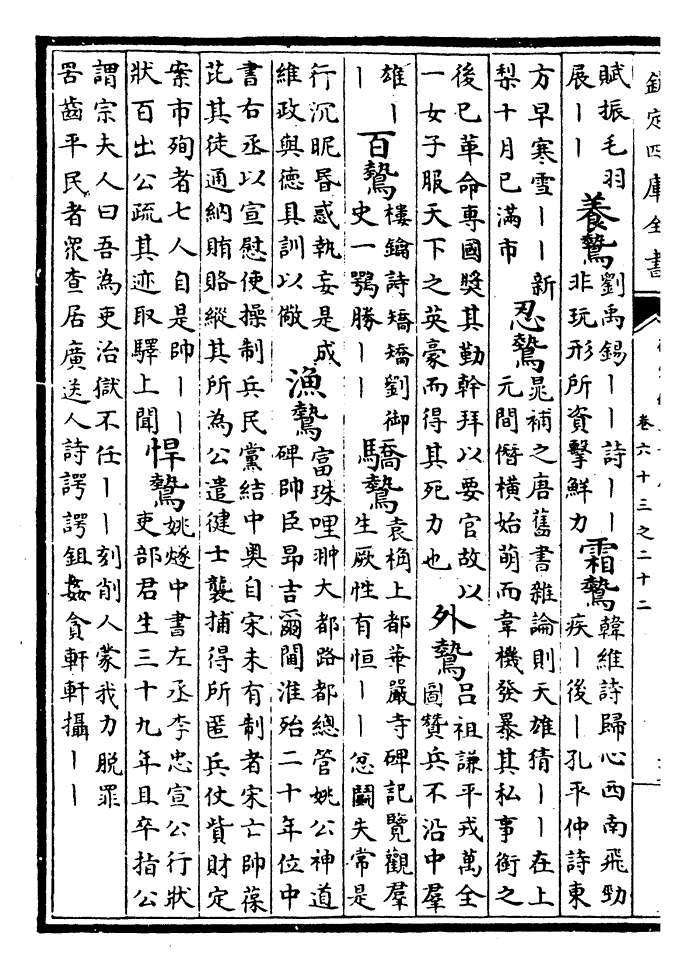 欽定四庫全書
卷六十三之二十二
賦振毛羽
展丨丨
養鷙
劉禹錫丨丨詩丨丨
非玩形所資擊鮮力
霜鷙
韓維詩歸心西南飛勁
疾丨後丨孔平仲詩東
方早寒雪丨丨新
梨十月已滿市
忍鷙
晁補之唐舊書雜論則天雄猜丨丨在上
元間僭橫始萌而韋機發暴其私事銜之
後已革命專國獎其勤幹拜以要官故以
一女子服天下之英豪而得其死力也
外鷙
呂祖謙平戎萬全
圖贊兵不沿中羣
雄丨
丨
百鷙
樓鑰詩矯矯劉御
史一鶚勝丨丨
驕鷙
袁桷上都華嚴寺碑記覽觀羣
生厥性有恒丨丨忿鬬失常是
行沉眤昏惑執妄是成
維政與德具訓以儆
漁鷙
富珠哩翀大都路都總管姚公神道
碑帥臣昂吉爾閫淮殆二十年位中
書右丞以宣慰使操制兵民黨結中奧自宋未有制者宋亡帥葆
茈其徒通納賄賂縱其所為公遣健士襲捕得所匿兵仗貲財定
案市殉者七人自是帥丨丨
狀百出公疏其迹取驛上聞
悍鷙
姚燧中書左丞李忠宣公行狀
吏部君生三十九年且卒指公
謂宗夫人曰吾為吏治獄不任丨丨刻削人蒙我力脫罪
罟齒平民者衆查居廣送人詩諤諤鉏姦貪軒軒攝丨丨